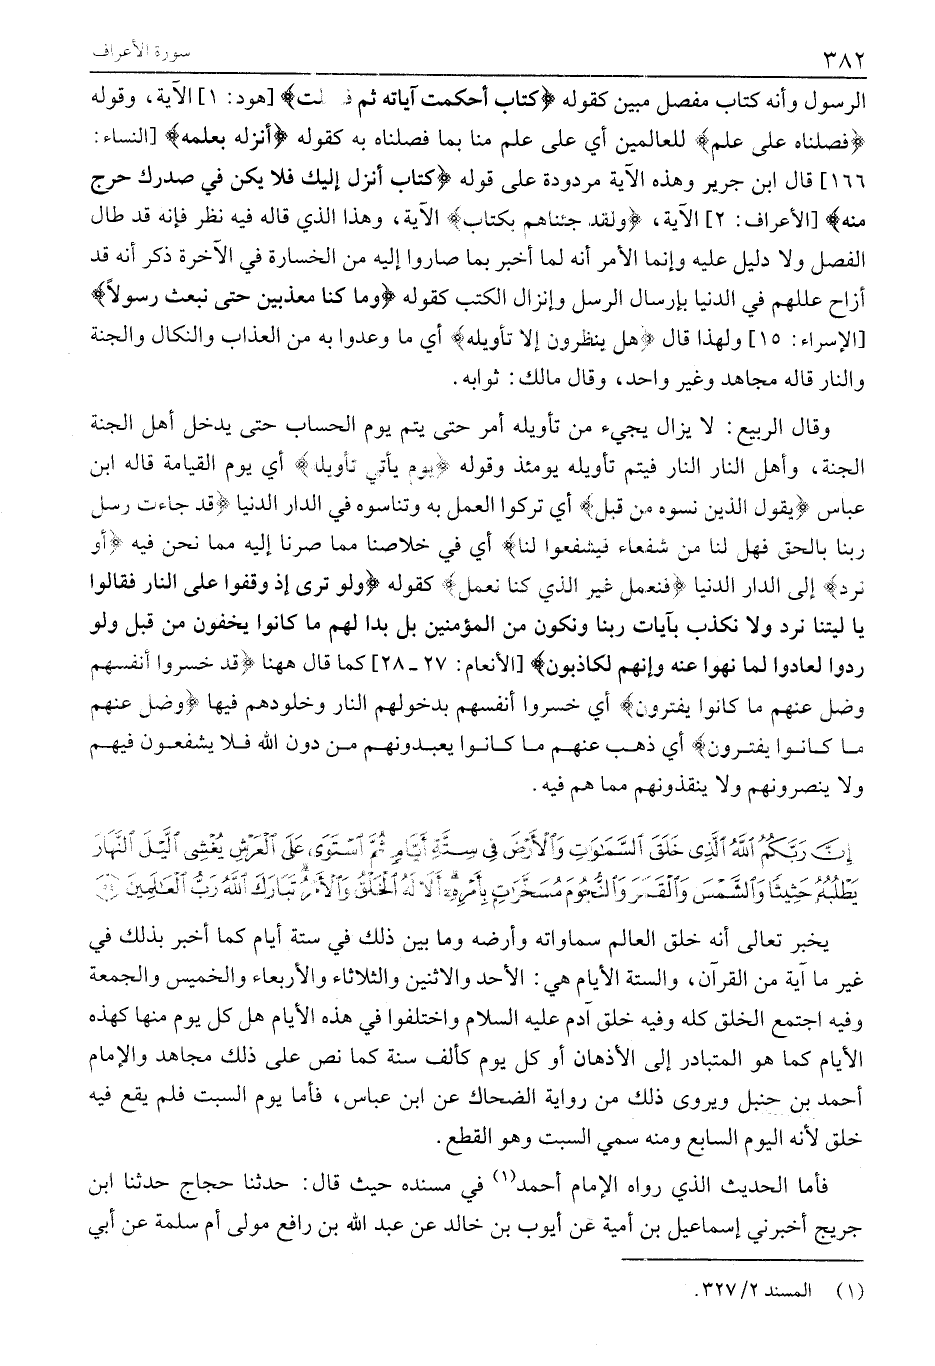 ٣٨٢ سورة الأعراف
الرسول وأنه كتاب مفصل مبين كقوله ﴿كتاب أحكمت آياته ثم فصلت﴾ [هود: ١] الآية، وقوله
﴿فصلناه على علم﴾ للعالمين أي على علم منا بما فصلناه به كقوله ﴿أنزله بعلمه﴾ [النساء:
١٦٦] قال ابن جرير وهذه الآية مردودة على قوله ﴿كتاب أنزل إليك فلا يكن في صدرك حرج
منه﴾ [الأعراف: ٢] الآية، ﴿ولقد جئناهم بكتاب﴾ الآية، وهذا الذي قاله فيه نظر فإنه قد طال
الفصل ولا دليل عليه وإنما الأمر أنه لما أخبر بما صاروا إليه من الخسارة في الآخرة ذكر أنه قد
أزاح عللهم في الدنيا بإرسال الرسل وإنزال الكتب كقوله ﴿وما كنا معذبين حتى نبعث رسولاً﴾
[الإسراء: ١٥] ولهذا قال ﴿هل ينظرون إلا تأويله﴾ أي ما وعدوا به من العذاب والنكال والجنة
والنار قاله مجاهد وغير واحد، وقال مالك: ثوابه.
وقال الربيع: لا يزال يجيء من تأويله أمر حتى يتم يوم الحساب حتى يدخل أهل الجنة
الجنة، وأهل النار النار فيتم تأويله يومئذ وقوله ﴿يوم يأتي تأويله﴾ أي يوم القيامة قاله ابن
عباس ﴿يقول الذين نسوه من قبل﴾ أي تركوا العمل به وتناسوه في الدار الدنيا ﴿قد جاءت رسل
ربنا بالحق فهل لنا من شفعاء فيشفعوا لنا﴾ أي في خلاصنا مما صرنا إليه مما نحن فيه ﴿أو
نرد﴾ إلى الدار الدنيا ﴿فنعمل غير الذي كنا نعمل﴾ كقوله ﴿ولو ترى إذ وقفوا على النار فقالوا
يا ليتنا نرد ولا نكذب بآيات ربنا ونكون من المؤمنين بل بدا لهم ما كانوا يخفون من قبل ولو
ردوا لعادوا لما نهوا عنه وإنهم لكاذبون﴾ [الأنعام: ٢٧ ـ ٢٨] كما قال ههنا ﴿قد خسروا أنفسهم
وضل عنهم ما كانوا يفترون﴾ أي خسروا أنفسهم بدخولهم النار وخلودهم فيها ﴿وضل عنهم
ما كانوا يفترون﴾ أي ذهب عنهم ما كانوا يعبدونهم من دون الله فلا يشفعون فيهم
ولا ينصرونهم ولا ينقذونهم مما هم فيه.
إِنَّ رَبَّكُمُ اللَّهُ الَّذِى خَلَقَ السَّمَاوَاتِ وَالْأَرْضَ فِى سِتَّةِ أَيَّامٍ ثُمَّ اسْتَوَى عَلَى الْعَرْشِ يُغْشِى اللَّيْلَ النَّهَارَ
يَطْلُبُهُ حَثِيثًا وَالشَّمْسَ وَالْقَمَرَ وَالنُّجُومَ مُسَخَّرَاتٍ بِأَمْرِهِ أَلَا لَهُ الْخَلْقُ وَالْأَمْرُ تَبَارَكَ اللَّهُ رَبُّ الْعَالَمِينَ
يخبر تعالى أنه خلق العالم سماواته وأرضه وما بين ذلك في ستة أيام كما أخبر بذلك في
غير ما آية من القرآن، والستة الأيام هي: الأحد والاثنين والثلاثاء والأربعاء والخميس والجمعة
وفيه اجتمع الخلق كله وفيه خلق آدم عليه السلام واختلفوا في هذه الأيام هل كل يوم منها كهذه
الأيام كما هو المتبادر إلى الأذهان أو كل يوم كألف سنة كما نص على ذلك مجاهد والإمام
أحمد بن حنبل ويروى ذلك من رواية الضحاك عن ابن عباس، فأما يوم السبت فلم يقع فيه
خلق لأنه اليوم السابع ومنه سمي السبت وهو القطع.
فأما الحديث الذي رواه الإمام أحمد(١) في مسنده حيث قال: حدثنا حجاج حدثنا ابن
جريج أخبرني إسماعيل بن أمية عن أيوب بن خالد عن عبد الله بن رافع مولى أم سلمة عن أبي
(١) المسند ٢/ ٣٢٧.